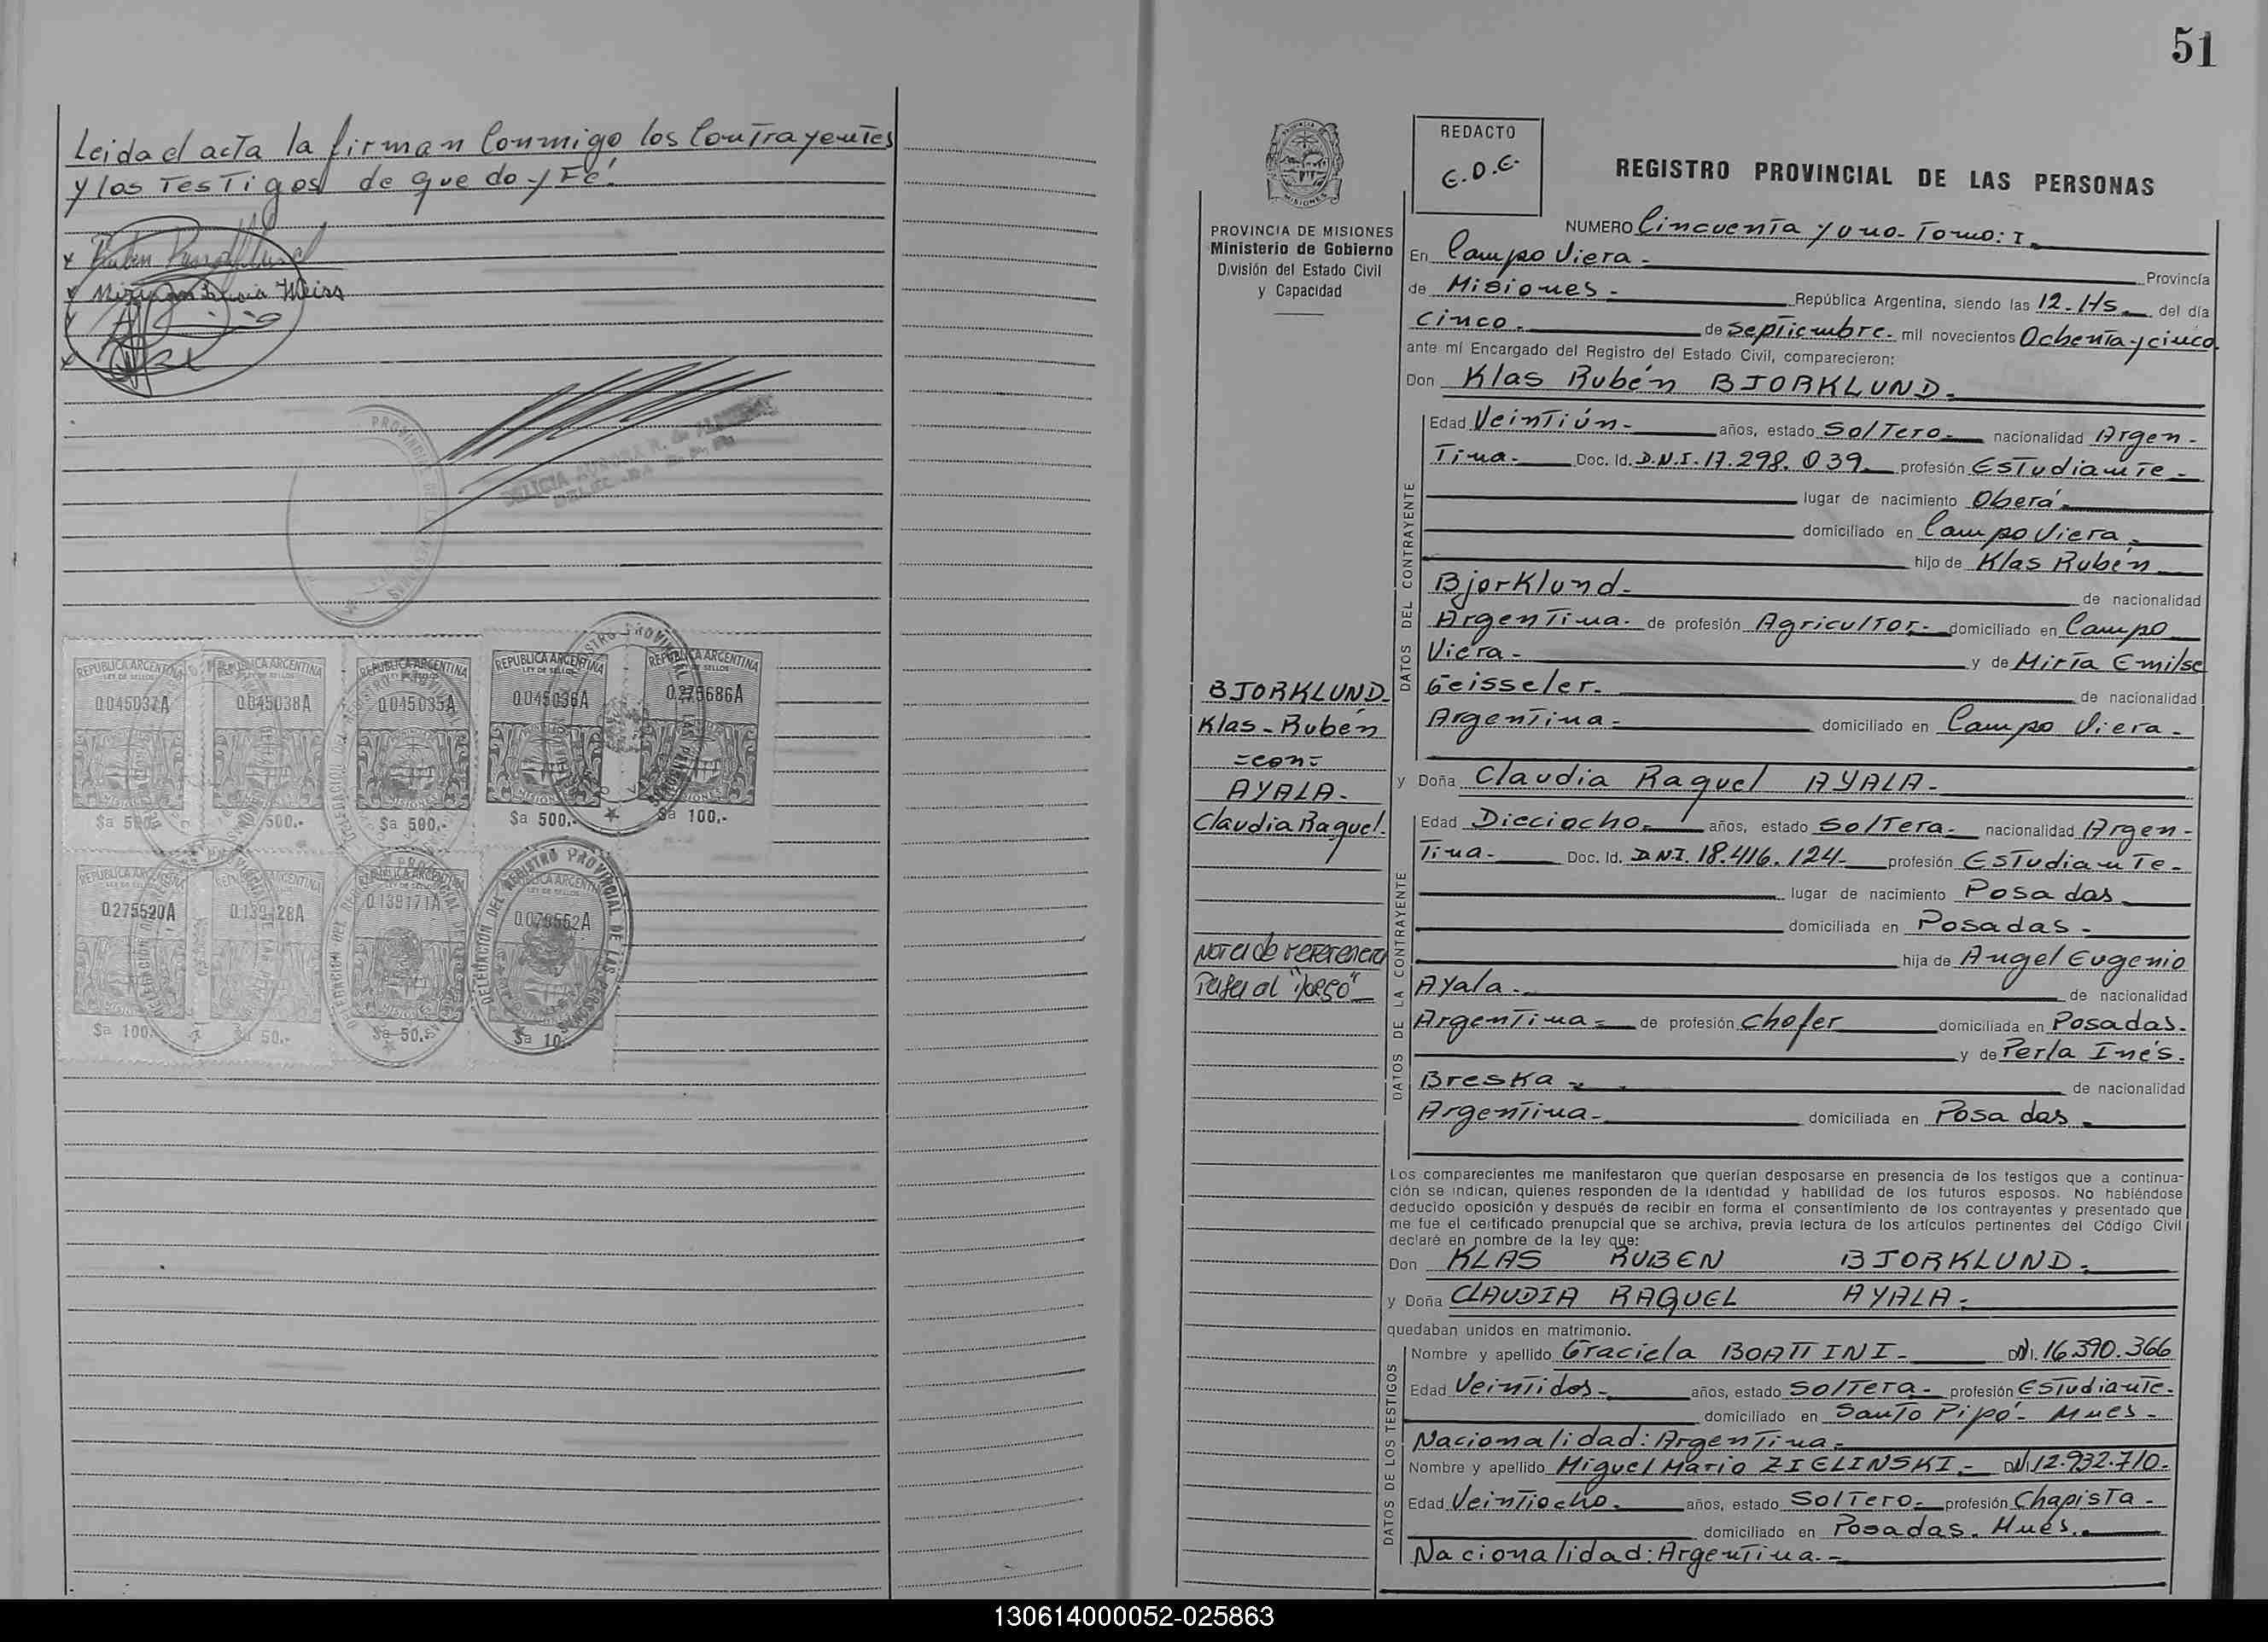 Leida el acta la firman Conmigo los Contrayentes
y los Testigos de que doy Fé.
REPUBLICA ARGENTINA
LEY DE SELLOS
0.045037A
MISIONES
REPUBLICA ARGENTINA
0.045038A
500,-
REPUBLICA ARGENTINA
0.045035A
MISIONES
$a 500,-
REPUBLICA ARGENTINA
LEY DE SELLOS
0.045036A
$a 500,-
REPUBLICA ARGENTINA
0.275686A
$a 100,-
REPUBLICA ARGENTINA
0.275520A
$a 100,-
50,-
0.139171A
$a 50,-
DELEGACION DEL REGISTRO PROVINCIAL DE LAS PERSONAS
$a 10,-
51
PROVINCIA DE MISIONES
Ministerio de Gobierno
División del Estado Civil
y Capacidad
BJORKLUND
Klas - Rubén
=con=
AYALA-
Claudia Raquel.
Nota de referencia
REDACTO
E.D.E.
REGISTRO PROVINCIAL DE LAS PERSONAS
NUMERO Cincuenta y uno- Tomo: I
En Campo Viera - Provincia
de Misiones - República Argentina, siendo las 12.Hs del día
cinco. de septiembre. mil novecientos Ochenta y cinco.
ante mí Encargado del Registro del Estado Civil, comparecieron:
Don Klas Rubén BJORKLUND.
DATOS DEL CONTRAYENTE
Edad Veintiún- años, estado Soltero- nacionalidad Argen-
tina- Doc. Id. D.N.I. 17.298.039 profesión Estudiante-
lugar de nacimiento Oberá-
domiciliado en Campo Viera-
hijo de Klas Rubén
Bjorklund- de nacionalidad
Argentina- de profesión Agricultor- domiciliado en Campo
Viera- y de Miría Emilse
Geisseler- de nacionalidad
Argentina- domiciliado en Campo Viera-
y Doña Claudia Raquel AYALA-
DATOS DE LA CONTRAYENTE
Edad Dieciocho- años, estado Soltera- nacionalidad Argen-
tina- Doc. Id. D.N.I. 18.416.124- profesión Estudiante-
lugar de nacimiento Posadas
domiciliada en Posadas-
hija de Angel Eugenio
Ayala- de nacionalidad
Argentina- de profesión Chofer domiciliada en Posadas-
y de Perla Inés-
Breska- de nacionalidad
Argentina- domiciliada en Posadas-
Los comparecientes me manifestaron que querían desposarse en presencia de los testigos que a continua-
ción se indican, quienes responden de la identidad y habilidad de los futuros esposos. No habiéndose
deducido oposición y después de recibir en forma el consentimiento de los contrayentes y presentado que
me fue el certificado prenupcial que se archiva, previa lectura de los artículos pertinentes del Código Civil
declaré en nombre de la ley que:
Don KLAS RUBEN BJORKLUND-
y Doña CLAUDIA RAQUEL AYALA-
quedaban unidos en matrimonio.
DATOS DE LOS TESTIGOS
Nombre y apellido Graciela BOATTINI- DNI. 16.390.366
Edad Veintidos- años, estado Soltera- profesión Estudiante-
domiciliado en Santo Pipó- Mnes-
Nacionalidad: Argentina-
Nombre y apellido Miguel Mario ZIELINSKI- DNI 12.932.710-
Edad Veintiocho- años, estado Soltero- profesión Chapista-
domiciliado en Posadas. Mnes.
Nacionalidad: Argentina.-
130614000052-025863